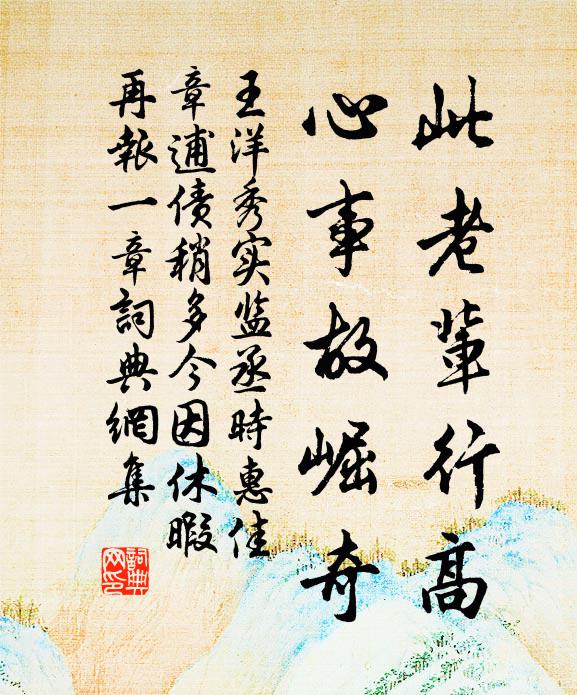 此老辈行高
心事故崛奇
王洋秀实监丞时惠佳
章逋债稍多今因休暇
再報一章詞典網集
詞典
网印